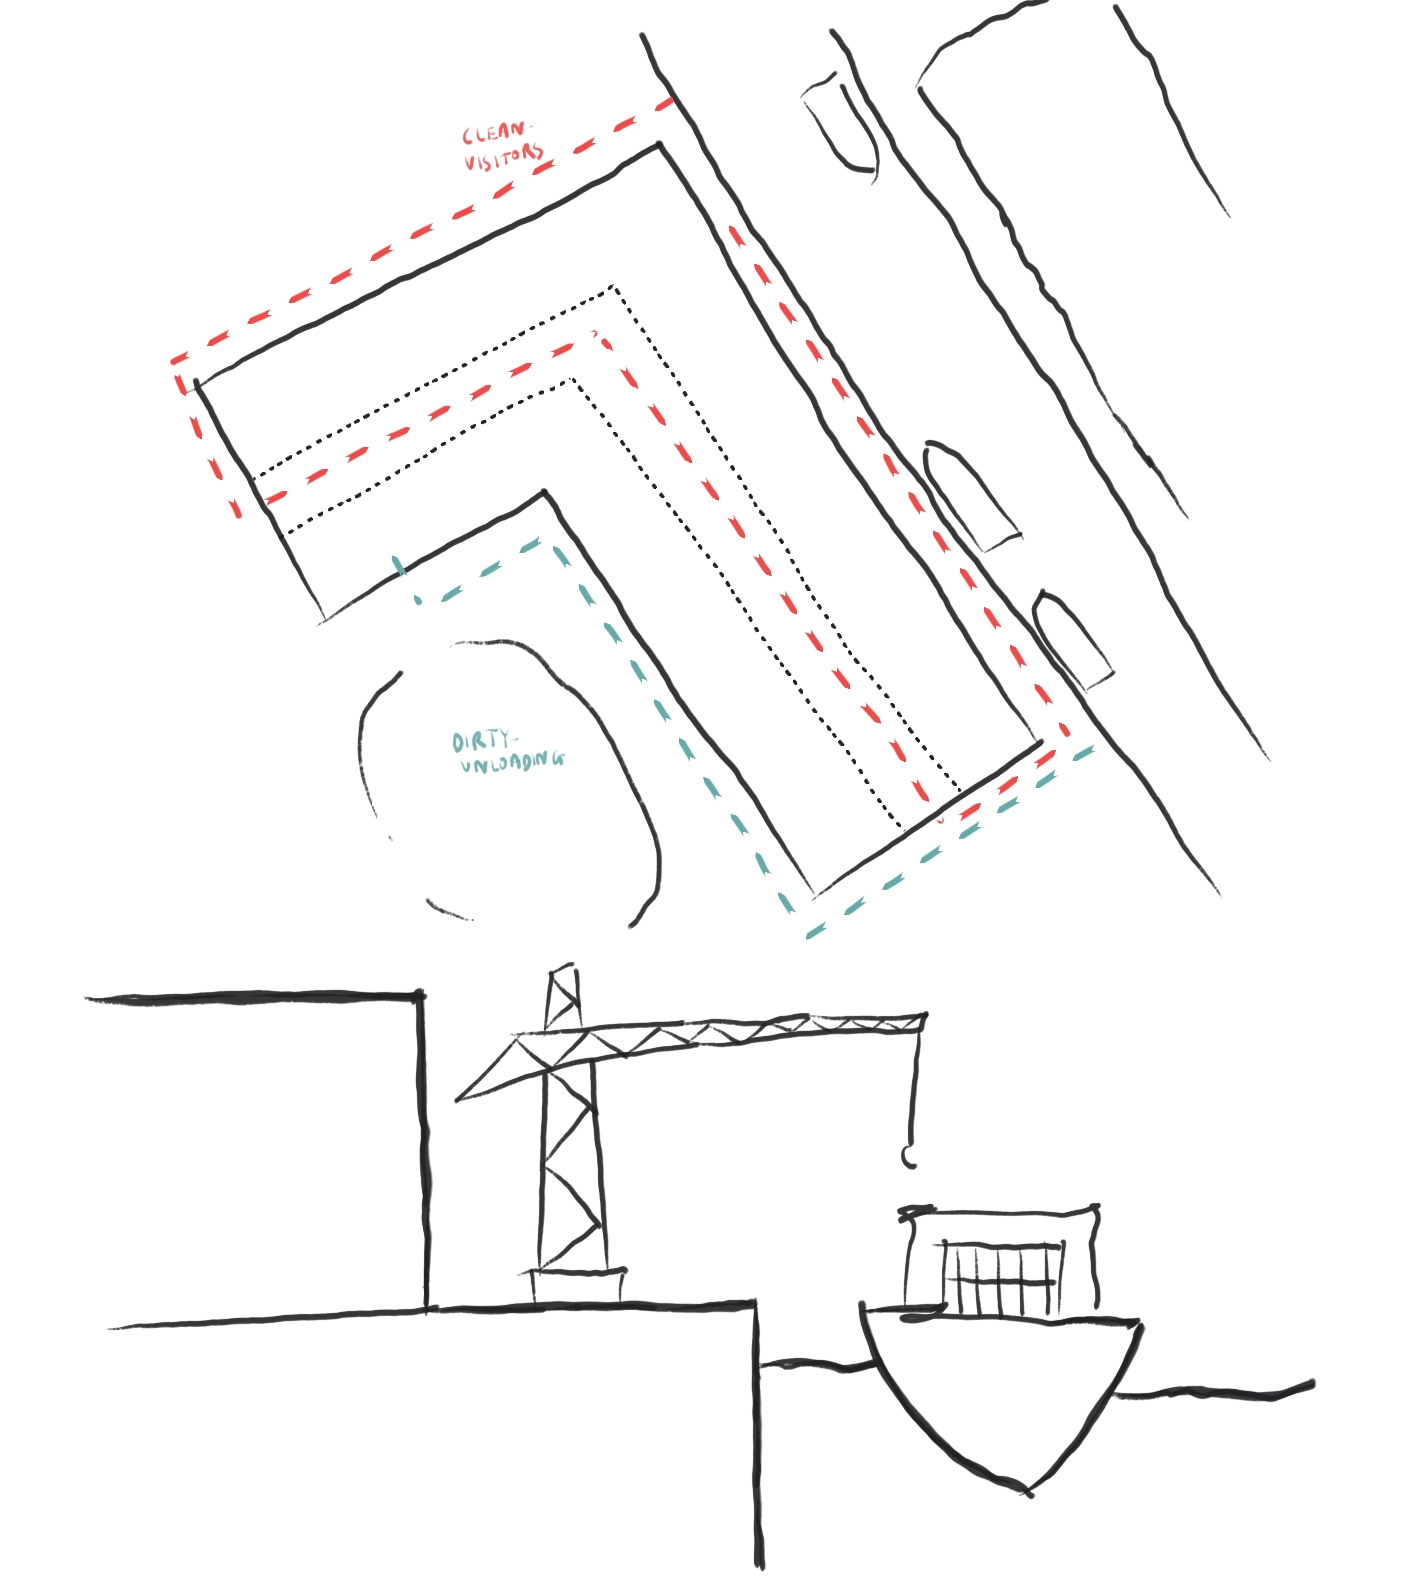 CLEAN-
VISITORS
DIRTY-
UNLOADING